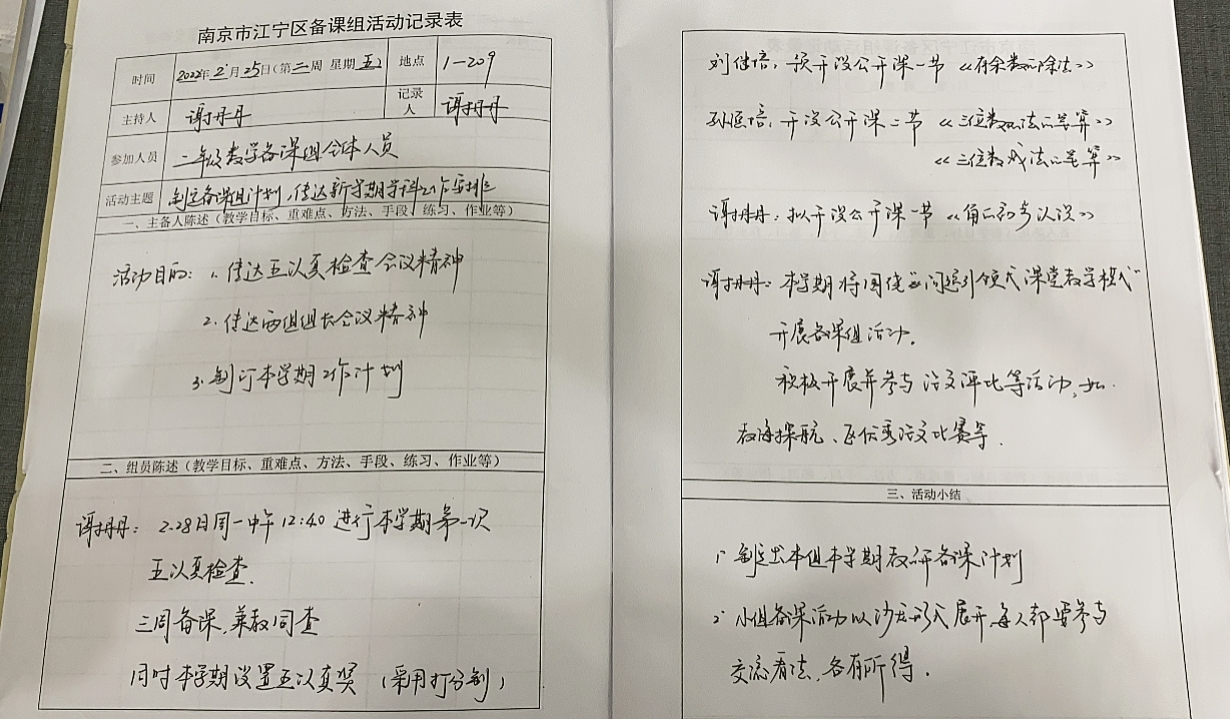 南京市江宁区备课组活动记录表
时间 2022年2月25日(第二周 星期五) 地点 1-209
主持人 谢丹丹 记录人 谢丹丹
参加人员 二年级数学备课组全体人员
活动主题 制定备课组计划,传达新学期学科工作安排
一、主备人陈述(教学目标、重难点、方法、手段、练习、作业等)
活动目的: 1. 传达五认真检查会议精神
2. 传达两组组长会议精神
3. 制订本学期工作计划
二、组员陈述(教学目标、重难点、方法、手段、练习、作业等)
谢丹丹: 2.28日周一中午12:40进行本学期第一次
五认真检查.
三周备课,兼教同查
同时本学期设置五认真奖 (采用打分制)
刘佳培: 预开设公开课一节 《有余数的除法》
培: 开设公开课二节 《三位数加法的笔算》
《三位数减法的笔算》
谢丹丹: 拟开设公开课一节 《角的初步认识》
谢丹丹: 本学期将围绕“问题引领式课堂教学模式”
开展备课组活动.
积极开展并参与论文评比等活动,如.
教海探航、区优秀论文比赛等.
三、活动小结
1. 制定出本组本学期教研备课计划
2. 小组备课活动以沙龙形式展开,每人都要参与
交流看法,各有所得.